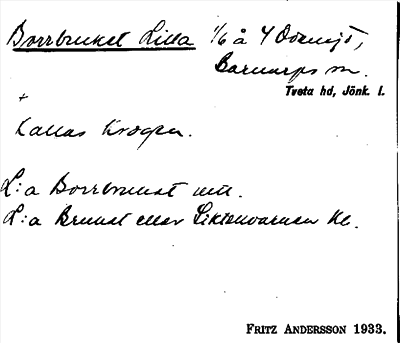 Borrbruket Lilla 1/6 å 4 Ovensjö,
Barnarps sn.
Tveta hd, Jönk. l.
+
Kallas Krogen.
L:a Borrbruket
L:a Bruket eller
FRITZ ANDERSSON 1933.